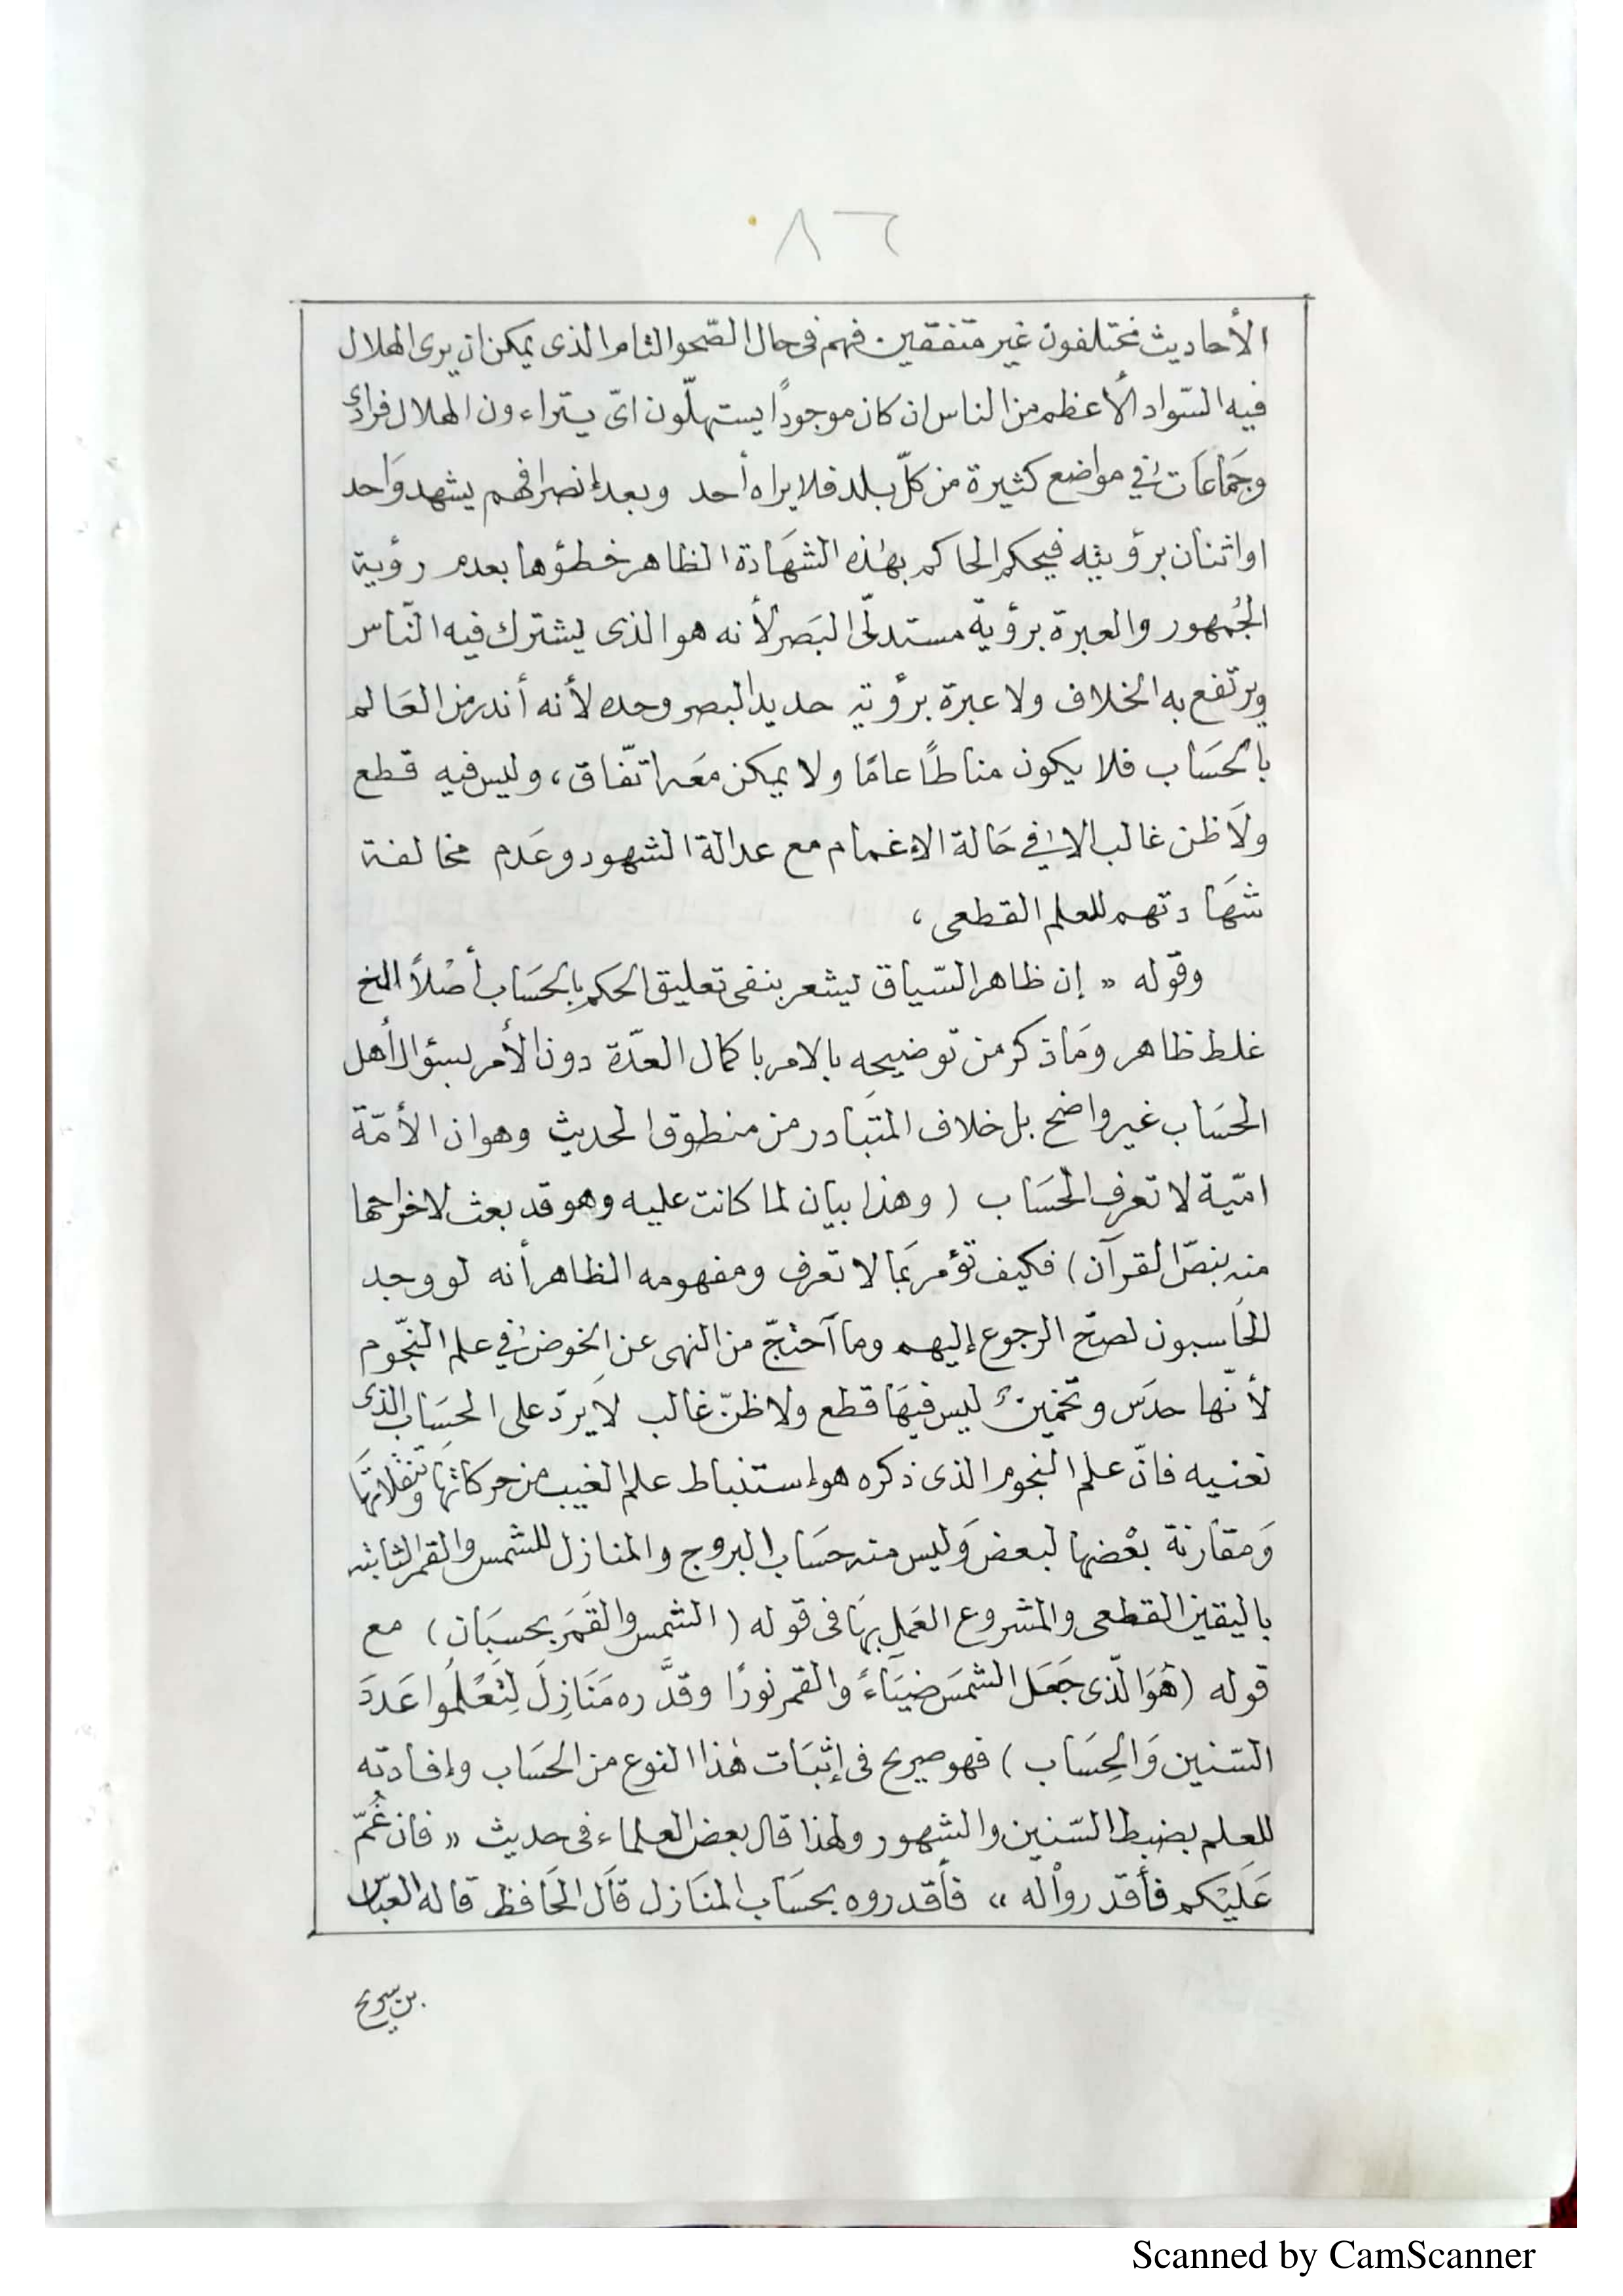 ٨٦
الأحاديث مختلفون غير متفقين فهم في حال الصّحو التام الذى يمكن ان يرى الهلال
فيه السّواد الأعظم من الناس ان كان موجودًا يستهلّون اىّ يتراءون الهلال فرادى
وجَمَاعَات في مواضع كثيرة من كلّ بلد فلا يراه أحد وبعد إنصرافهم يشهد وَاحد
او اثنان برؤيته فيحكم الحاكم بهٰذه الشهَادة الظاهر خطؤها بعدم رؤية
الجُمهور والعبرة برؤية مستدلّى البَصر لأنه هو الذى يشترك فيه النّاس
ويرتفع به الخلاف ولا عبرة برؤية حديد البصر وحده لأنه أندر من العَالم
بالحَسَاب فلا يكون مناطًا عامًا ولا يمكن معَه اتّفاق، وليس فيه قطع
ولَا ظن غالب الا في حَالة الاغمام مع عدالة الشهود وعَدم مخالفة
شهَادتهم للعلم القطعى،
وقوله « إن ظاهر السّياق ليشعر بنفى تعليق الحكم بالحَسَاب أصْلًا الخ
غلط ظاهر ومَا ذكر من توضيحه بالامر باكمال العدّة دون الأمر بسؤال أهل
الحَسَاب غير واضح بل خلاف المتبَادر من منطوق الحديث وهو ان الأمّة
امّية لا تعرف الحَسَاب ( وهذا بيان لما كانت عليه وهو قد بعث لاخراجها
منه بنصّ القرآن ) فكيف تؤمر بَما لا تعرف ومفهومه الظاهر أنه لو وجد
الحَاسبون لصحّ الرجوع إليهم وما آحتجّ من النهى عن الخوض في علم النجّوم
لأنّها حدَس وتخمين ليس فيهَا قطع ولا ظنّ غالب لَا يردّ على الحسَاب الذى
نعنيه فانّ علم النجوم الذى ذكره هو إستنباط علم الغيب من حركاتها وتنقلاتها
وَمقارنة بعْضها لبعض وَليس منه حسَاب البروج والمنازل للشمس والقمر الثابته
باليقين القطعى والمشروع العَمل بهَا فى قوله ( الشمس والقَمَر بحسبَان ) مع
قوله ( هُوَ الّذى جَعَل الشمَس ضيَاءً والقمر نورًا وقدَّره مَنَازِلَ لِتَعْلَمُوا عَددَ
السّنين وَالحِسَاب ) فهو صريح فى إثبَات هٰذا النوع من الحسَاب وإفادته
للعلم بضبط السّنين والشهور ولهذا قال بعض العلماء فى حديث « فان غُمّ
عَليْكم فأقدرواْ له » فأقدروه بحسَاب المنَازل قاَل الحَافظ قاله العبّاس
بن سريج
Scanned by CamScanner